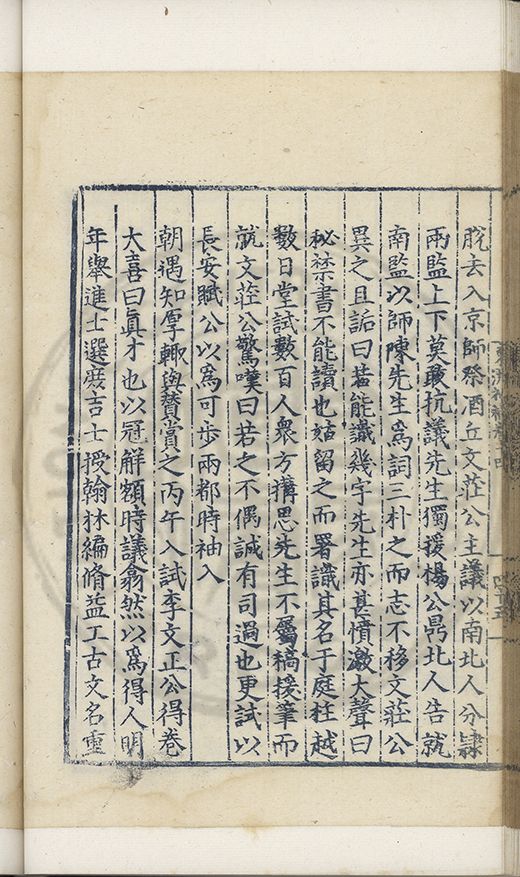 脫去入京師祭酒丘文莊公主議以南北人分隷
兩監上下莫敢抗議先生獨援楊公鼎北人告就
南監以師陳先生爲詞三朴之而志不移文莊公
異之且詬曰若能識幾字先生亦甚憤激大聲曰
秘禁書不能讀也姑留之而署識其名于庭柱越
數日堂試數百人衆方搆思先生不屬稿援筆而
就文莊公驚嘆曰若之不偶誠有司過也更試以
長安賦公以爲可步兩都時袖入
朝遇知厚輙與賛賞之丙午入試李文正公得卷
大喜曰眞才也以冠解額時議翕然以爲得人明
年舉進士選庶吉士授翰林編脩益工古文名重